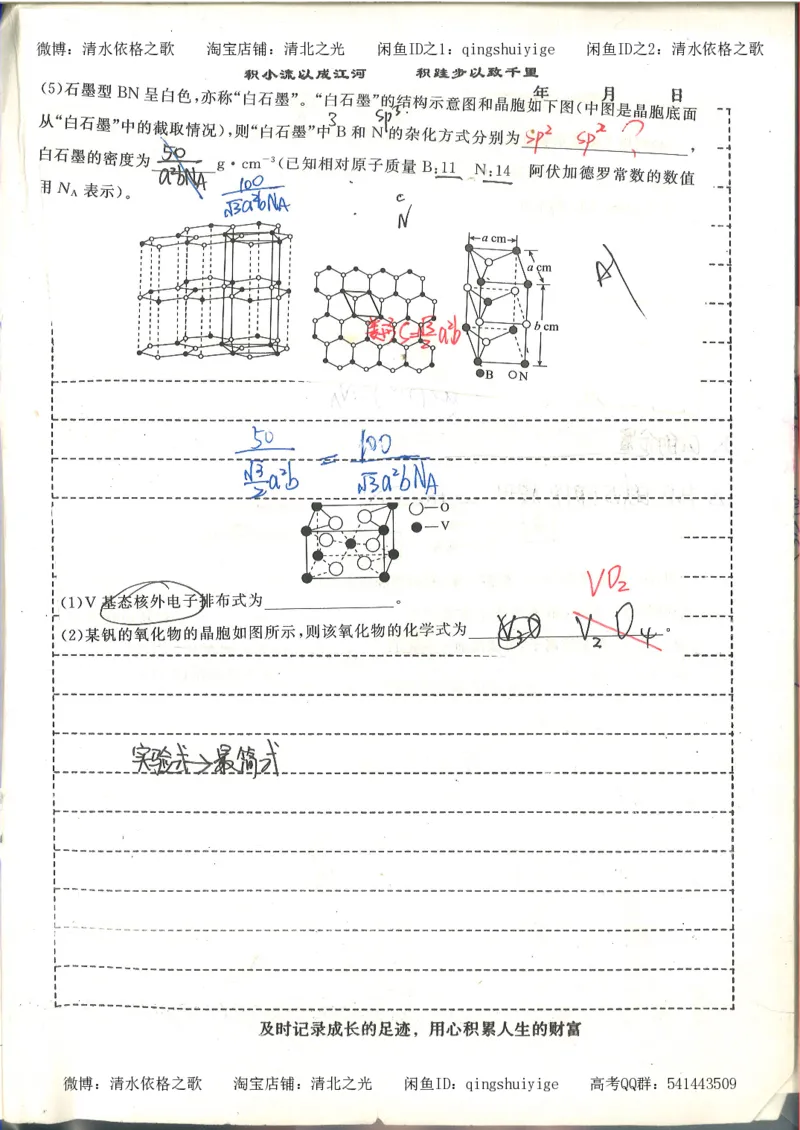 微博：清水依格之歌 淘宝店铺：清北之光 闲鱼ID之1：qingshuiyige 闲鱼ID之2：清水依格之歌
积小流以成江河 积跬步以致千里
年 月 日
(5)石墨型 BN 呈白色,亦称“白石墨”。“白石墨”的结构示意图和晶胞如下图(中图是晶胞底面
3 sp³
从“白石墨”中的截取情况),则“白石墨”中 B 和 N 的杂化方式分别为 sp² sp² ,
白石墨的密度为 50/a²bNA g·cm⁻³(已知相对原子质量 B:11 N:14 阿伏加德罗常数的数值
用 NA 表示)。 100/√3a²bNA
c
N
a cm
a cm
b cm
=√3/2 a²b
B N
50/(√3/2 a²b) = 100/√3a²bNA
O
V
(1)V 基态核外电子排布式为 。
VO₂
(2)某钒的氧化物的晶胞如图所示,则该氧化物的化学式为 V₂O₄ 。
实验式→最简式
及时记录成长的足迹，用心积累人生的财富
微博：清水依格之歌 淘宝店铺：清北之光 闲鱼ID：qingshuiyige 高考QQ群：541443509